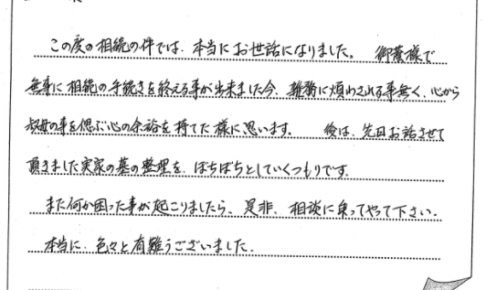 この度の相続の件では、本当にお世話になりました。 御蔭様で
無事に相続の手続きを終える事が出来ました今、雑務に煩わされる事無く、心から
叔母の事を偲ぶ心の余裕を持てた様に思います。 後は、先日お話させて
頂きました実家の墓の整理を、ぼちぼちとしていくつもりです。
また何か困った事が起こりましたら、是非、相談に乗ってやって下さい。
本当に、色々と有難うございました。